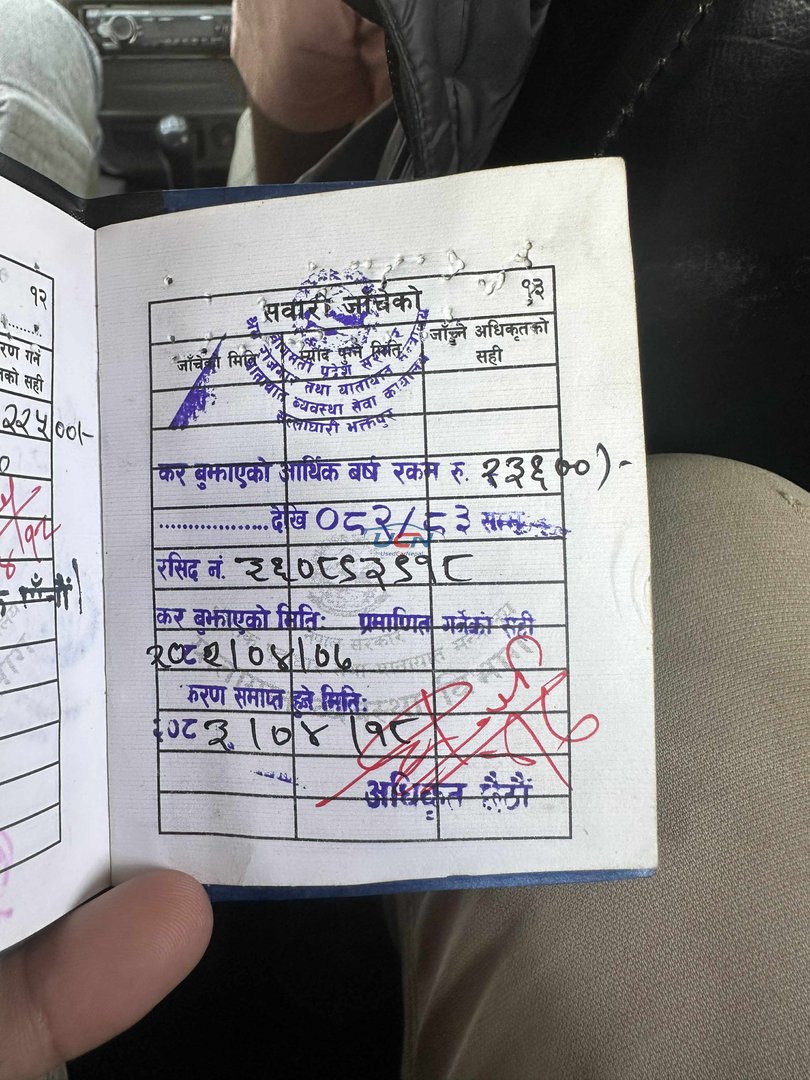 १२
रण गर्ने
को सही
२२५००/-
१३
सवारी जाँचेको
जाँचेको मिति
म्याद पुग्ने मिति
जाँच्ने अधिकृतको
सही
बागमती प्रदेश सरकार
यातायात व्यवस्था सेवा कार्यालय
सल्लाघारी भक्तपुर
कर बुझाएको आर्थिक बर्ष रकम रु. २३६००)-
...................देखि ०८२/८३ सम्म
UCN
UsedCarNepal
रसिद नं. ३६०८९२९१८
कर बुझाएको मिति: प्रमाणित गर्नेको सही
२०८२/०४/०७
करण समाप्त हुने मिति:
२०८३/०४/१८
अधिकृत छैठौं